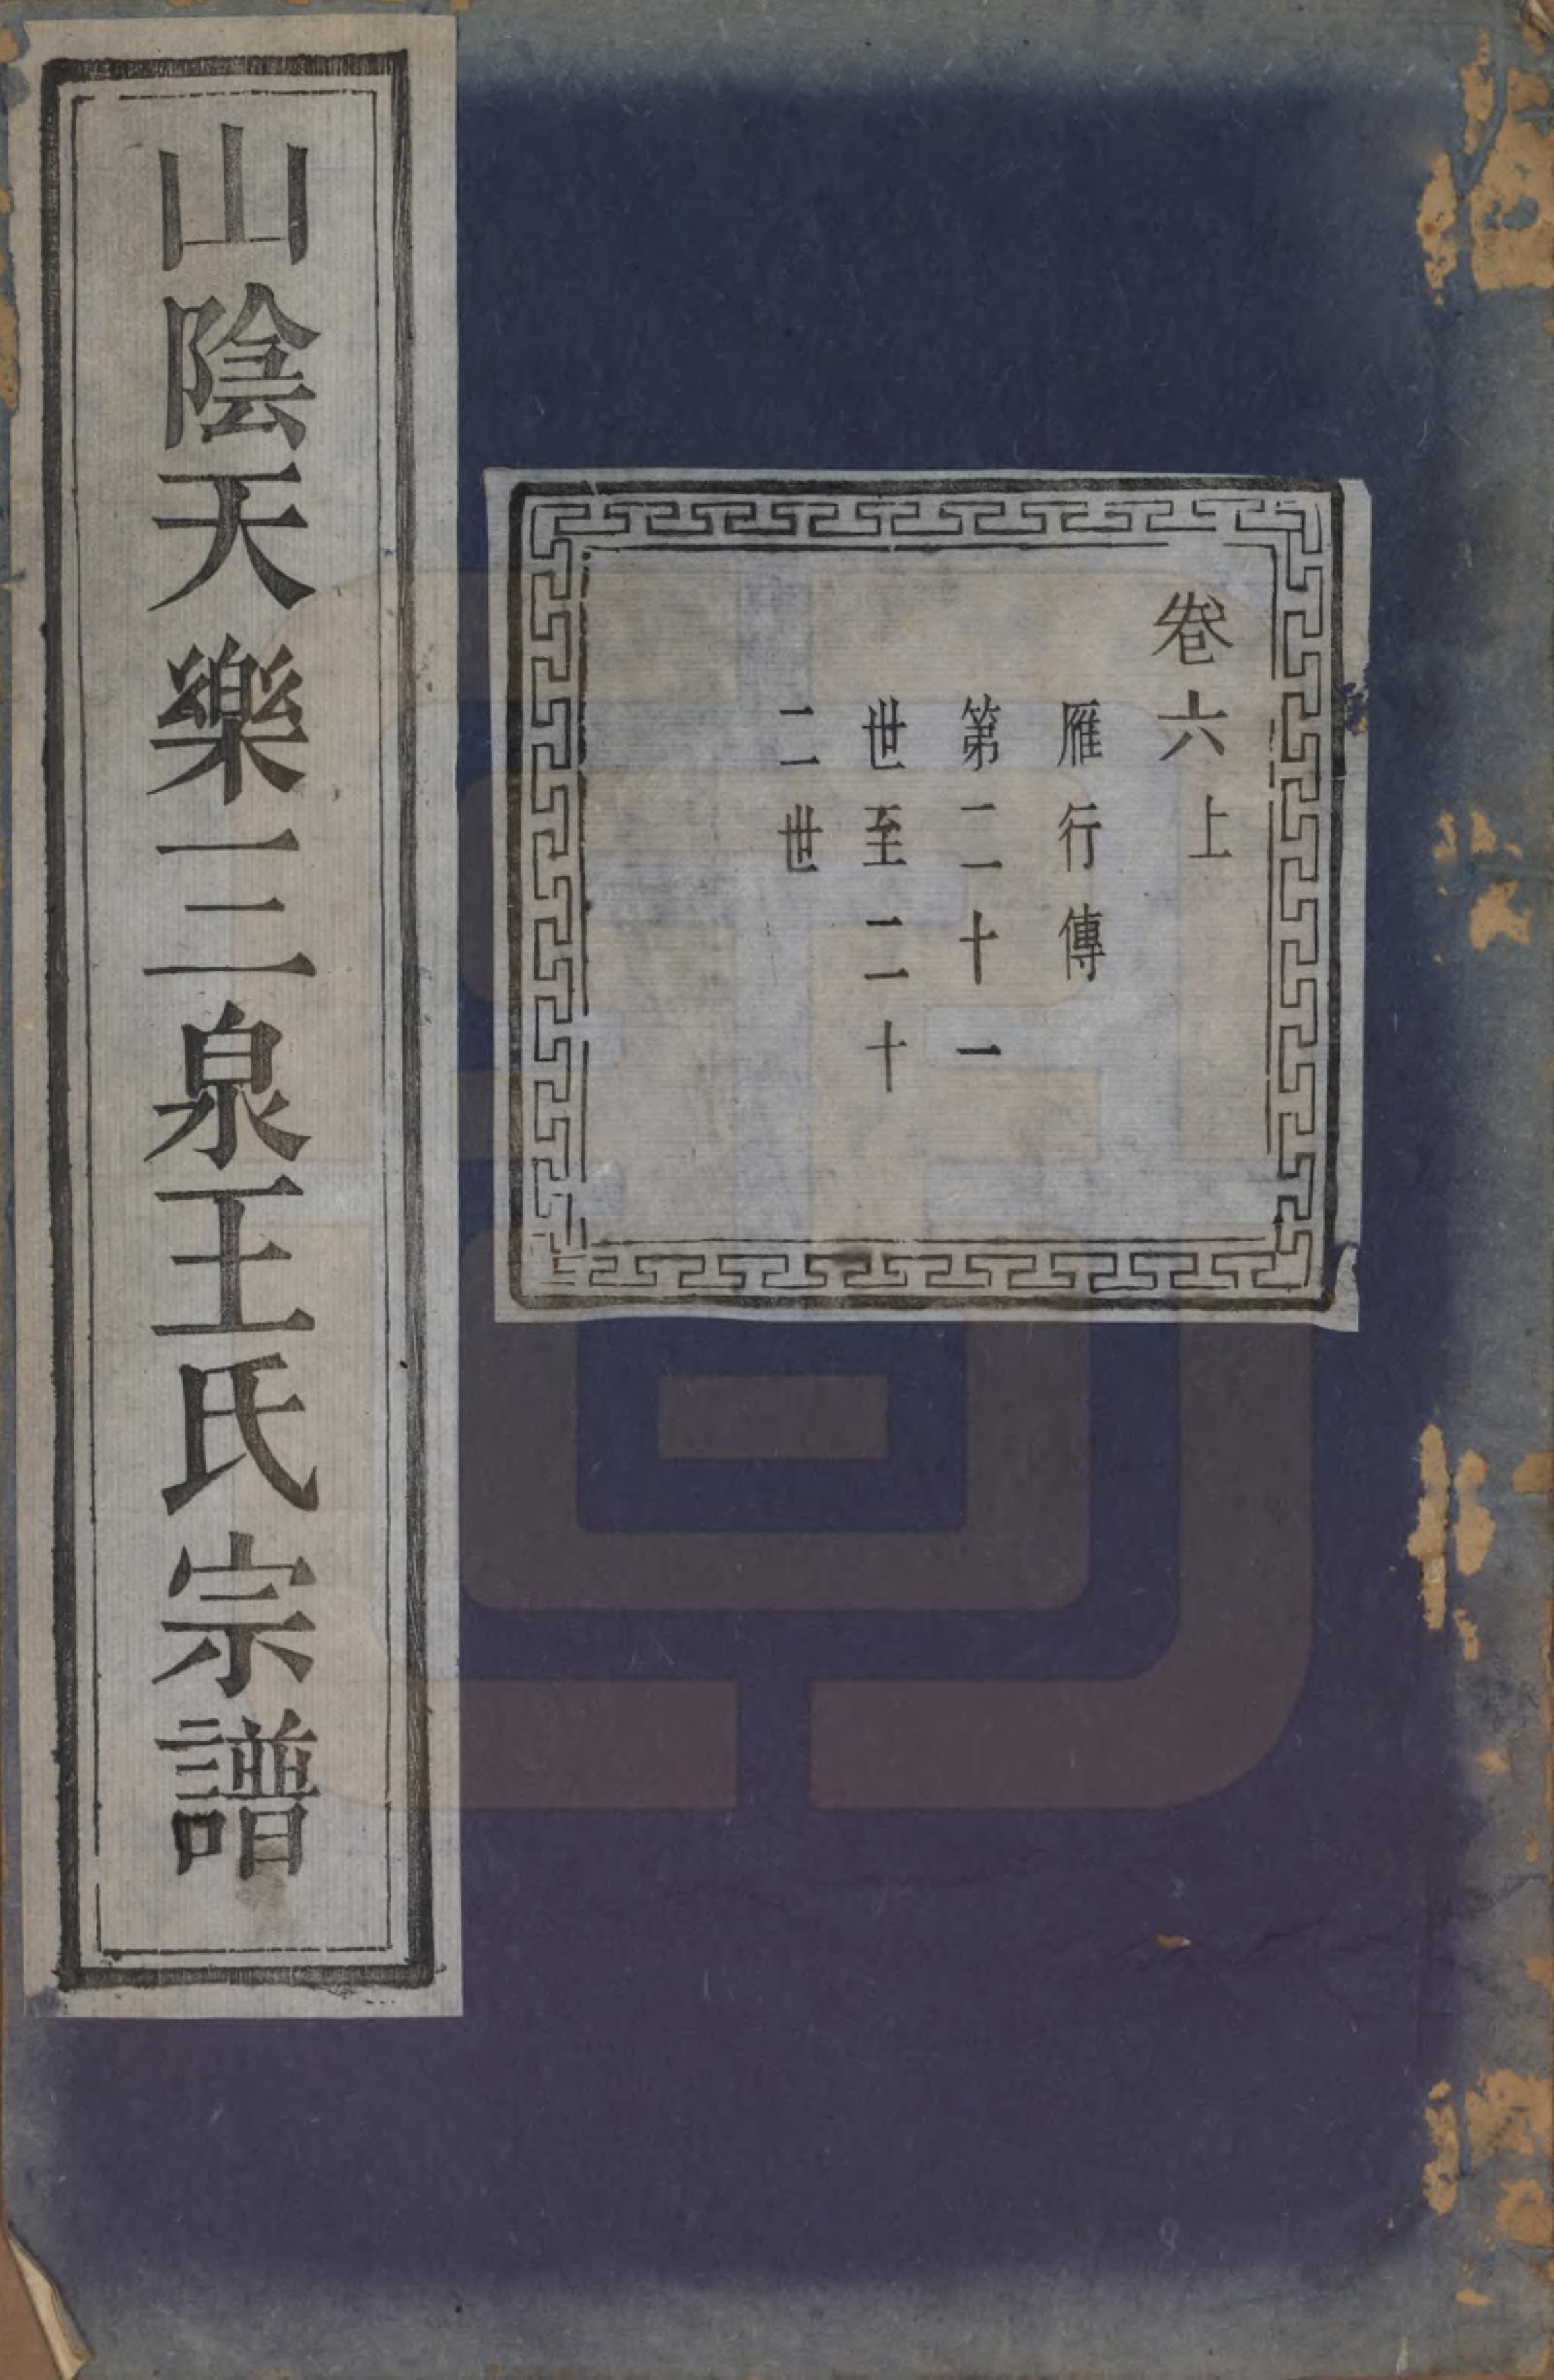 山陰天樂三泉王氏宗譜
卷六上
雁行傳
第二十一
世至二十
二世